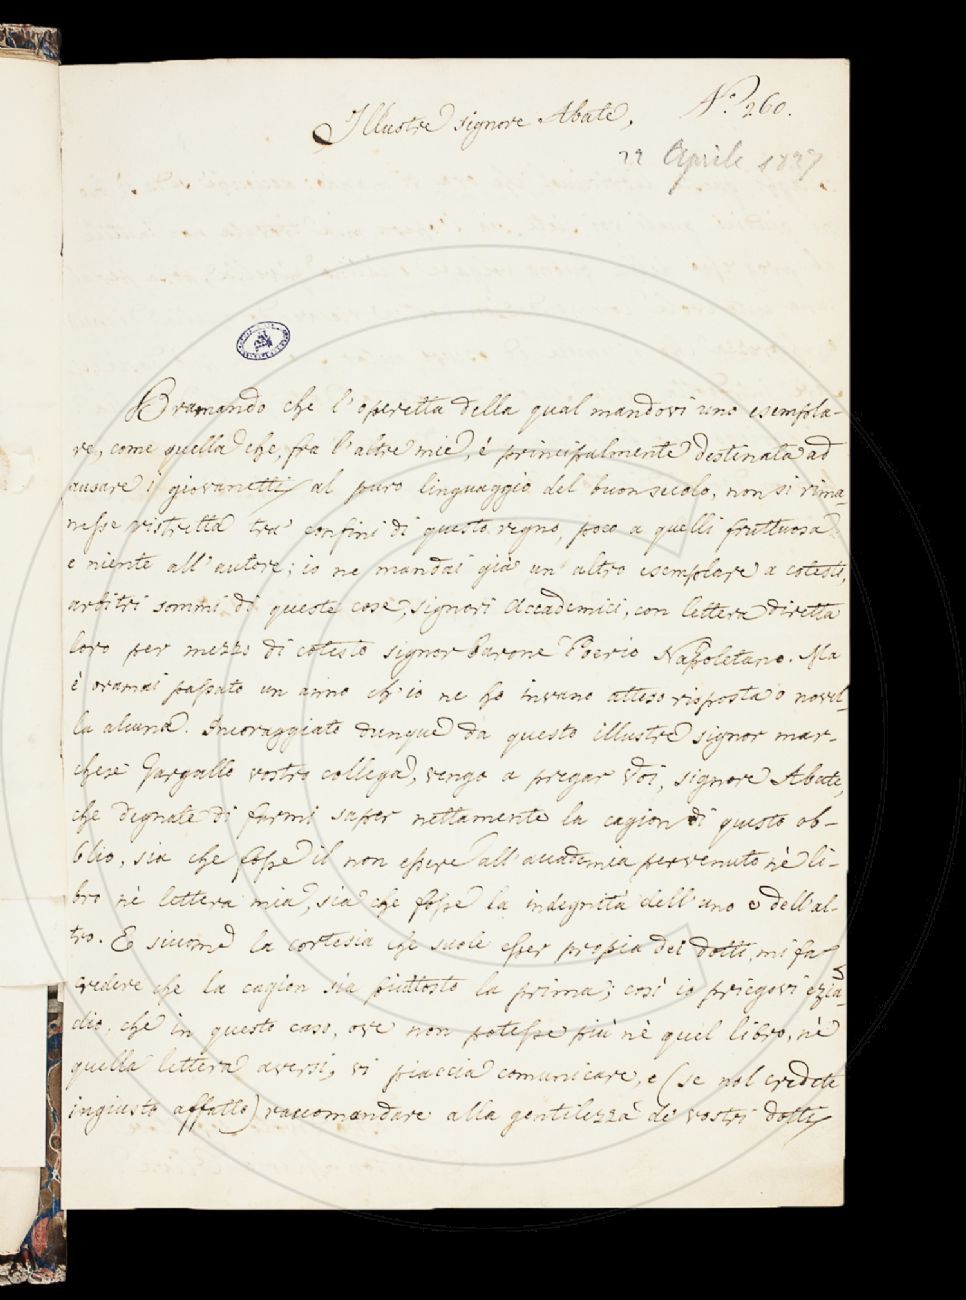 Illustre signore Abate,
N.º 260.
22 Aprile 1827
Bramando che l'operetta della qual mandovi uno esempla-
re, come quella che, fra l'altre mie, è principalmente destinata ad
ausare i giovanetti al puro linguaggio del buon secolo, non si rima-
nesse ristretta tra' confini di questo regno, poco a quelli fruttuosa
e niente all'autore; io ne mandai già un altro esemplare a cotesti,
arbitri sommi di queste cose, signori Accademici, con lettera diretta
loro per mezzo di cotesto signor Barone Poerio Napoletano. Ma
è oramai passato un anno ch'io ne ho invano atteso risposta o novel-
la alcuna. Incoraggiato dunque da questo illustre signor mar-
chese Gargallo vostro collega, vengo a pregar Voi, signore Abate,
che degnate di farmi saper nettamente la cagion di questo ob-
blio, sia che fosse il non essere all'accademia pervenuto nè li-
bro nè lettera mia, sia che fosse la indegnità dell'uno e dell'al-
tro. E siccome la cortesia che suole esser propia dei dotti, mi fa
credere che la cagion sia piuttosto la prima; così io priegovi ezian-
dio, che in questo caso, ove non potesse più nè quel libro, nè
quella lettera aversi, vi piaccia comunicare, e (se nol credete
ingiusto affatto) raccomandare alla gentilezza de' vostri dotti